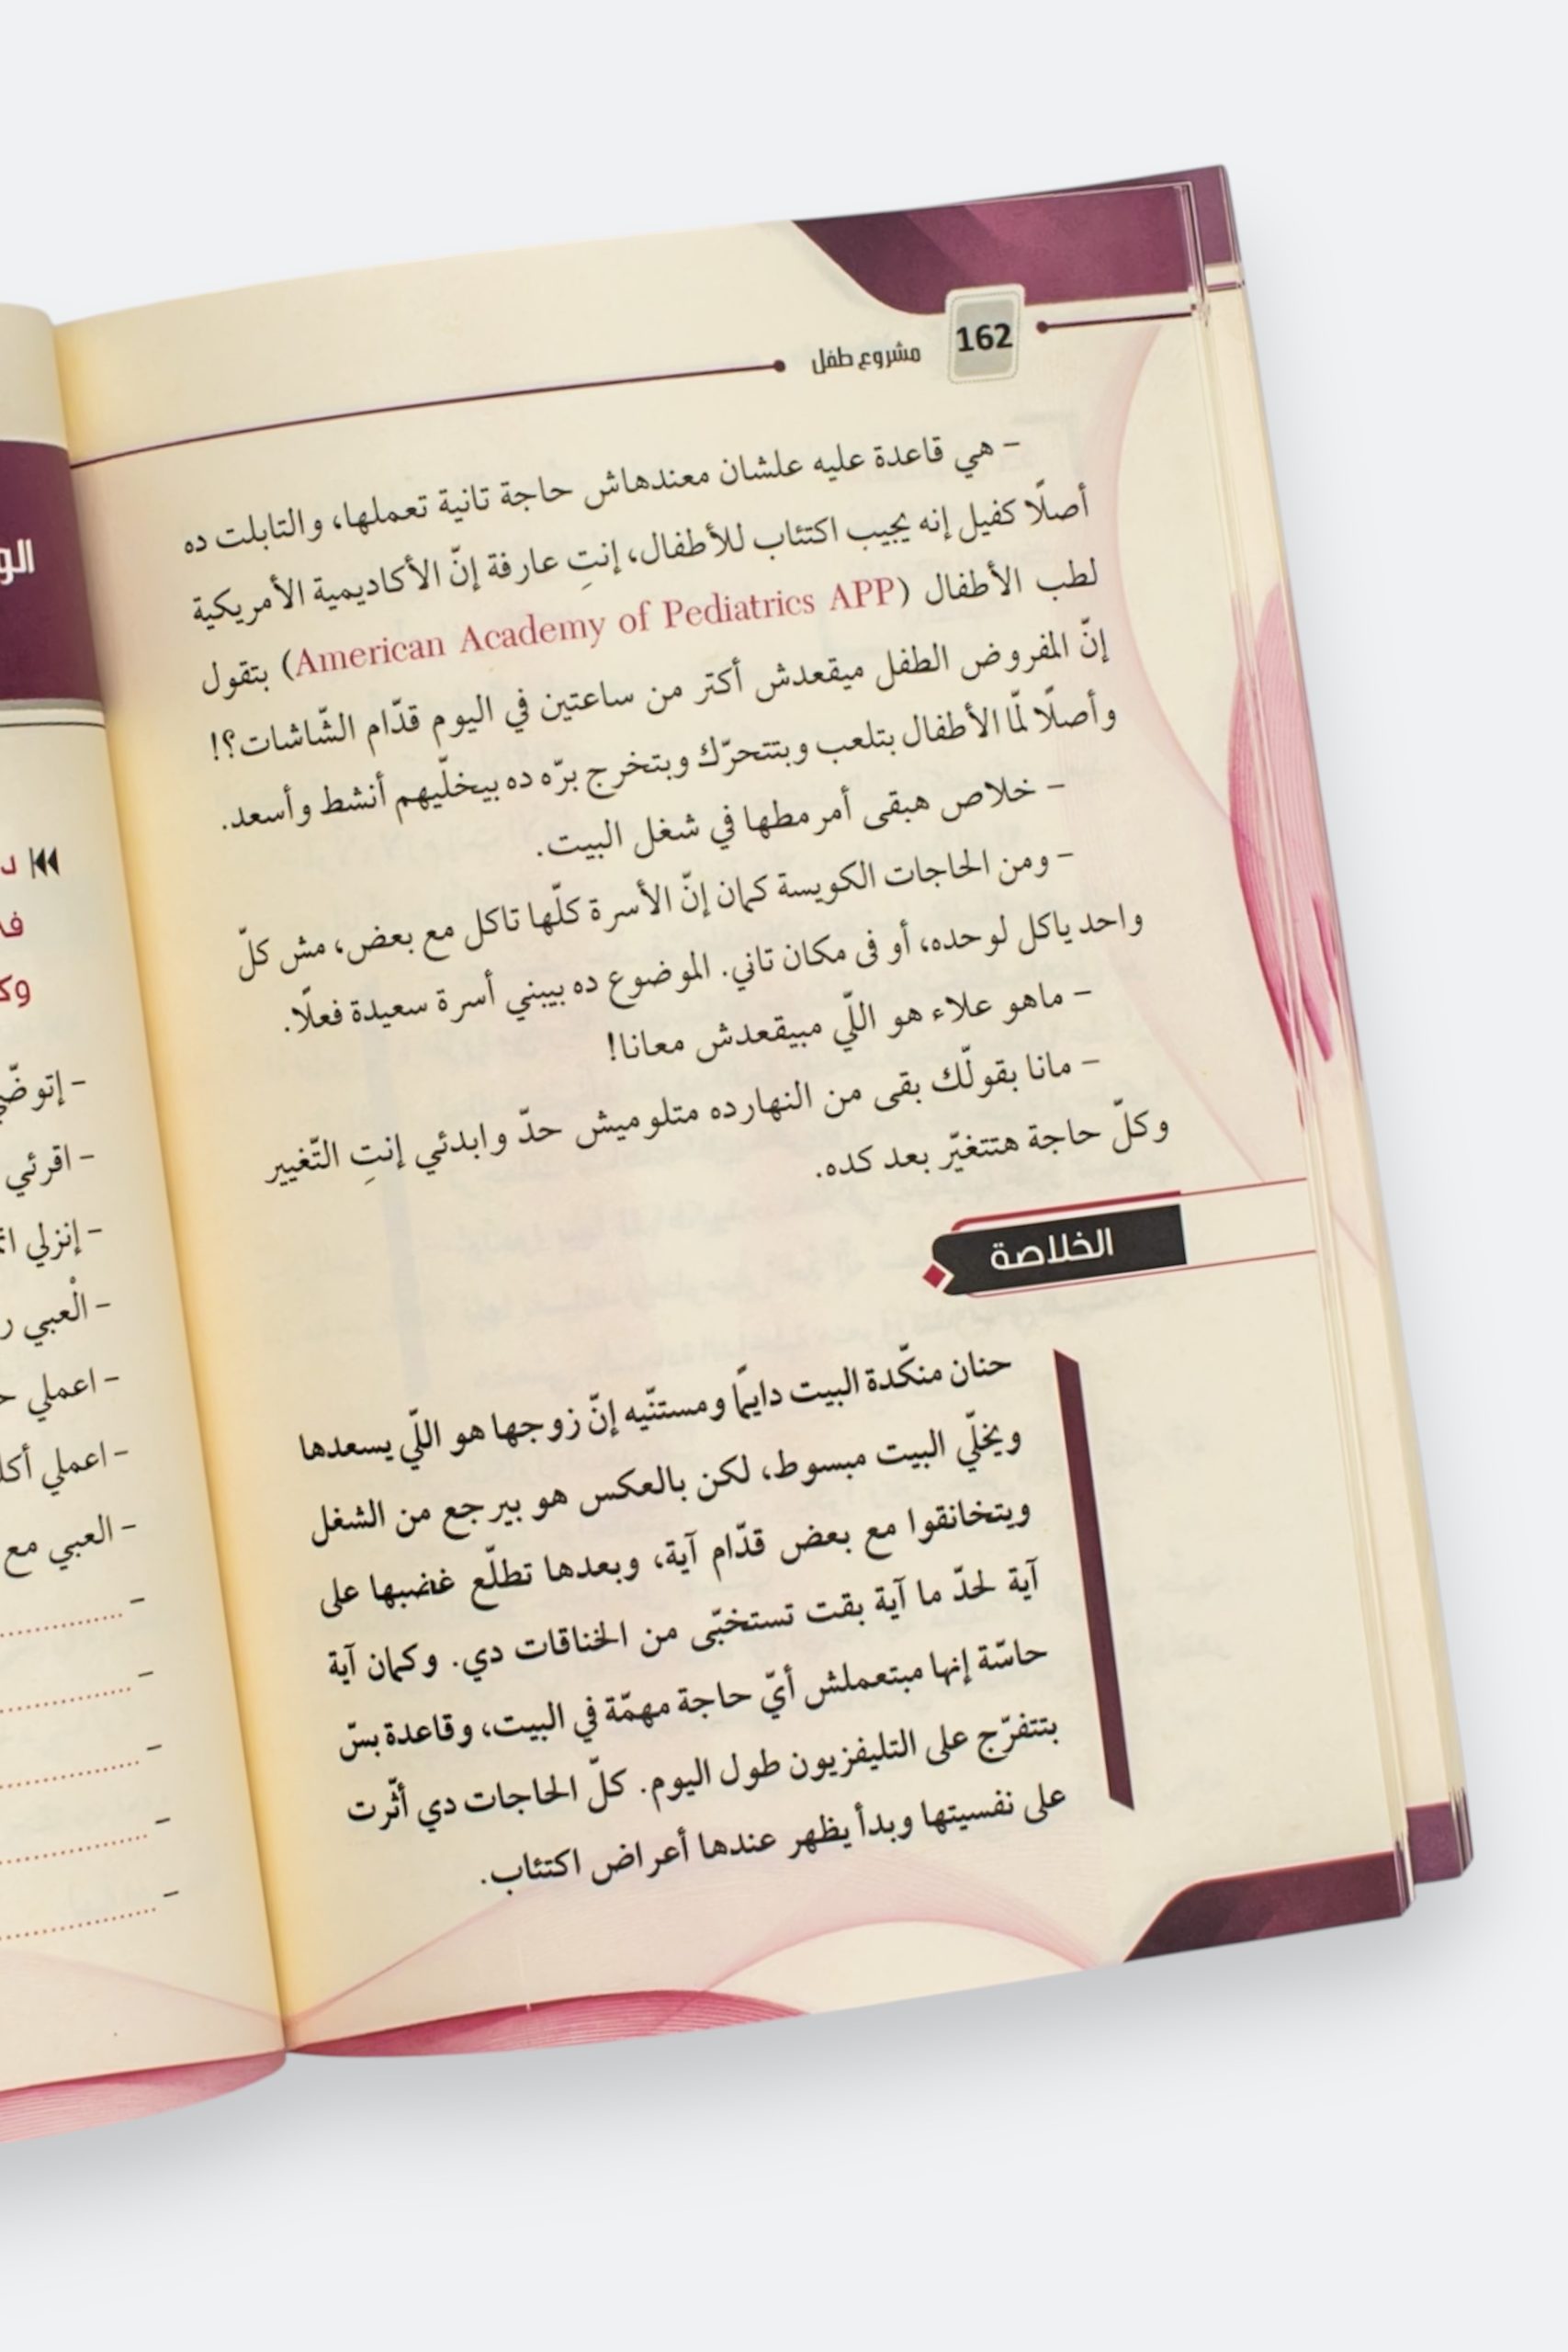 162
مشروع طفل
– هي قاعدة عليه علشان معندهاش حاجة تانية تعملها، والتابلت ده
أصلًا كفيل إنه يجيب اكتئاب للأطفال، إنتِ عارفة إنّ الأكاديمية الأمريكية
لطب الأطفال (American Academy of Pediatrics APP) بتقول
إنّ المفروض الطفل ميقعدش أكتر من ساعتين في اليوم قدّام الشّاشات؟!
وأصلًا لمّا الأطفال بتلعب وبتتحرّك وبتخرج برّه ده بيخلّيهم أنشط وأسعد.
– خلاص هبقى أمرمطها في شغل البيت.
– ومن الحاجات الكويسة كمان إنّ الأسرة كلّها تاكل مع بعض، مش كلّ
واحد ياكل لوحده، أو فى مكان تاني. الموضوع ده بيبني أسرة سعيدة فعلًا.
– ماهو علاء هو اللّي مبيقعدش معانا!
– مانا بقولّك بقى من النهارده متلوميش حدّ وابدئي إنتِ التّغيير
وكلّ حاجة هتتغيّر بعد كده.
الخلاصة
حنان منكّدة البيت دايمًا ومستنّيه إنّ زوجها هو اللّي يسعدها
ويخلّي البيت مبسوط، لكن بالعكس هو بيرجع من الشغل
ويتخانقوا مع بعض قدّام آية، وبعدها تطلّع غضبها على
آية لحدّ ما آية بقت تستخبّى من الخناقات دي. وكمان آية
حاسّة إنها مبتعملش أيّ حاجة مهمّة في البيت، وقاعدة بسّ
بتتفرّج على التليفزيون طول اليوم. كلّ الحاجات دي أثّرت
على نفسيتها وبدأ يظهر عندها أعراض اكتئاب.
– اقرئي
– إنزلي
– الْعبي
– اعملي
– اعملي
– العبي مع